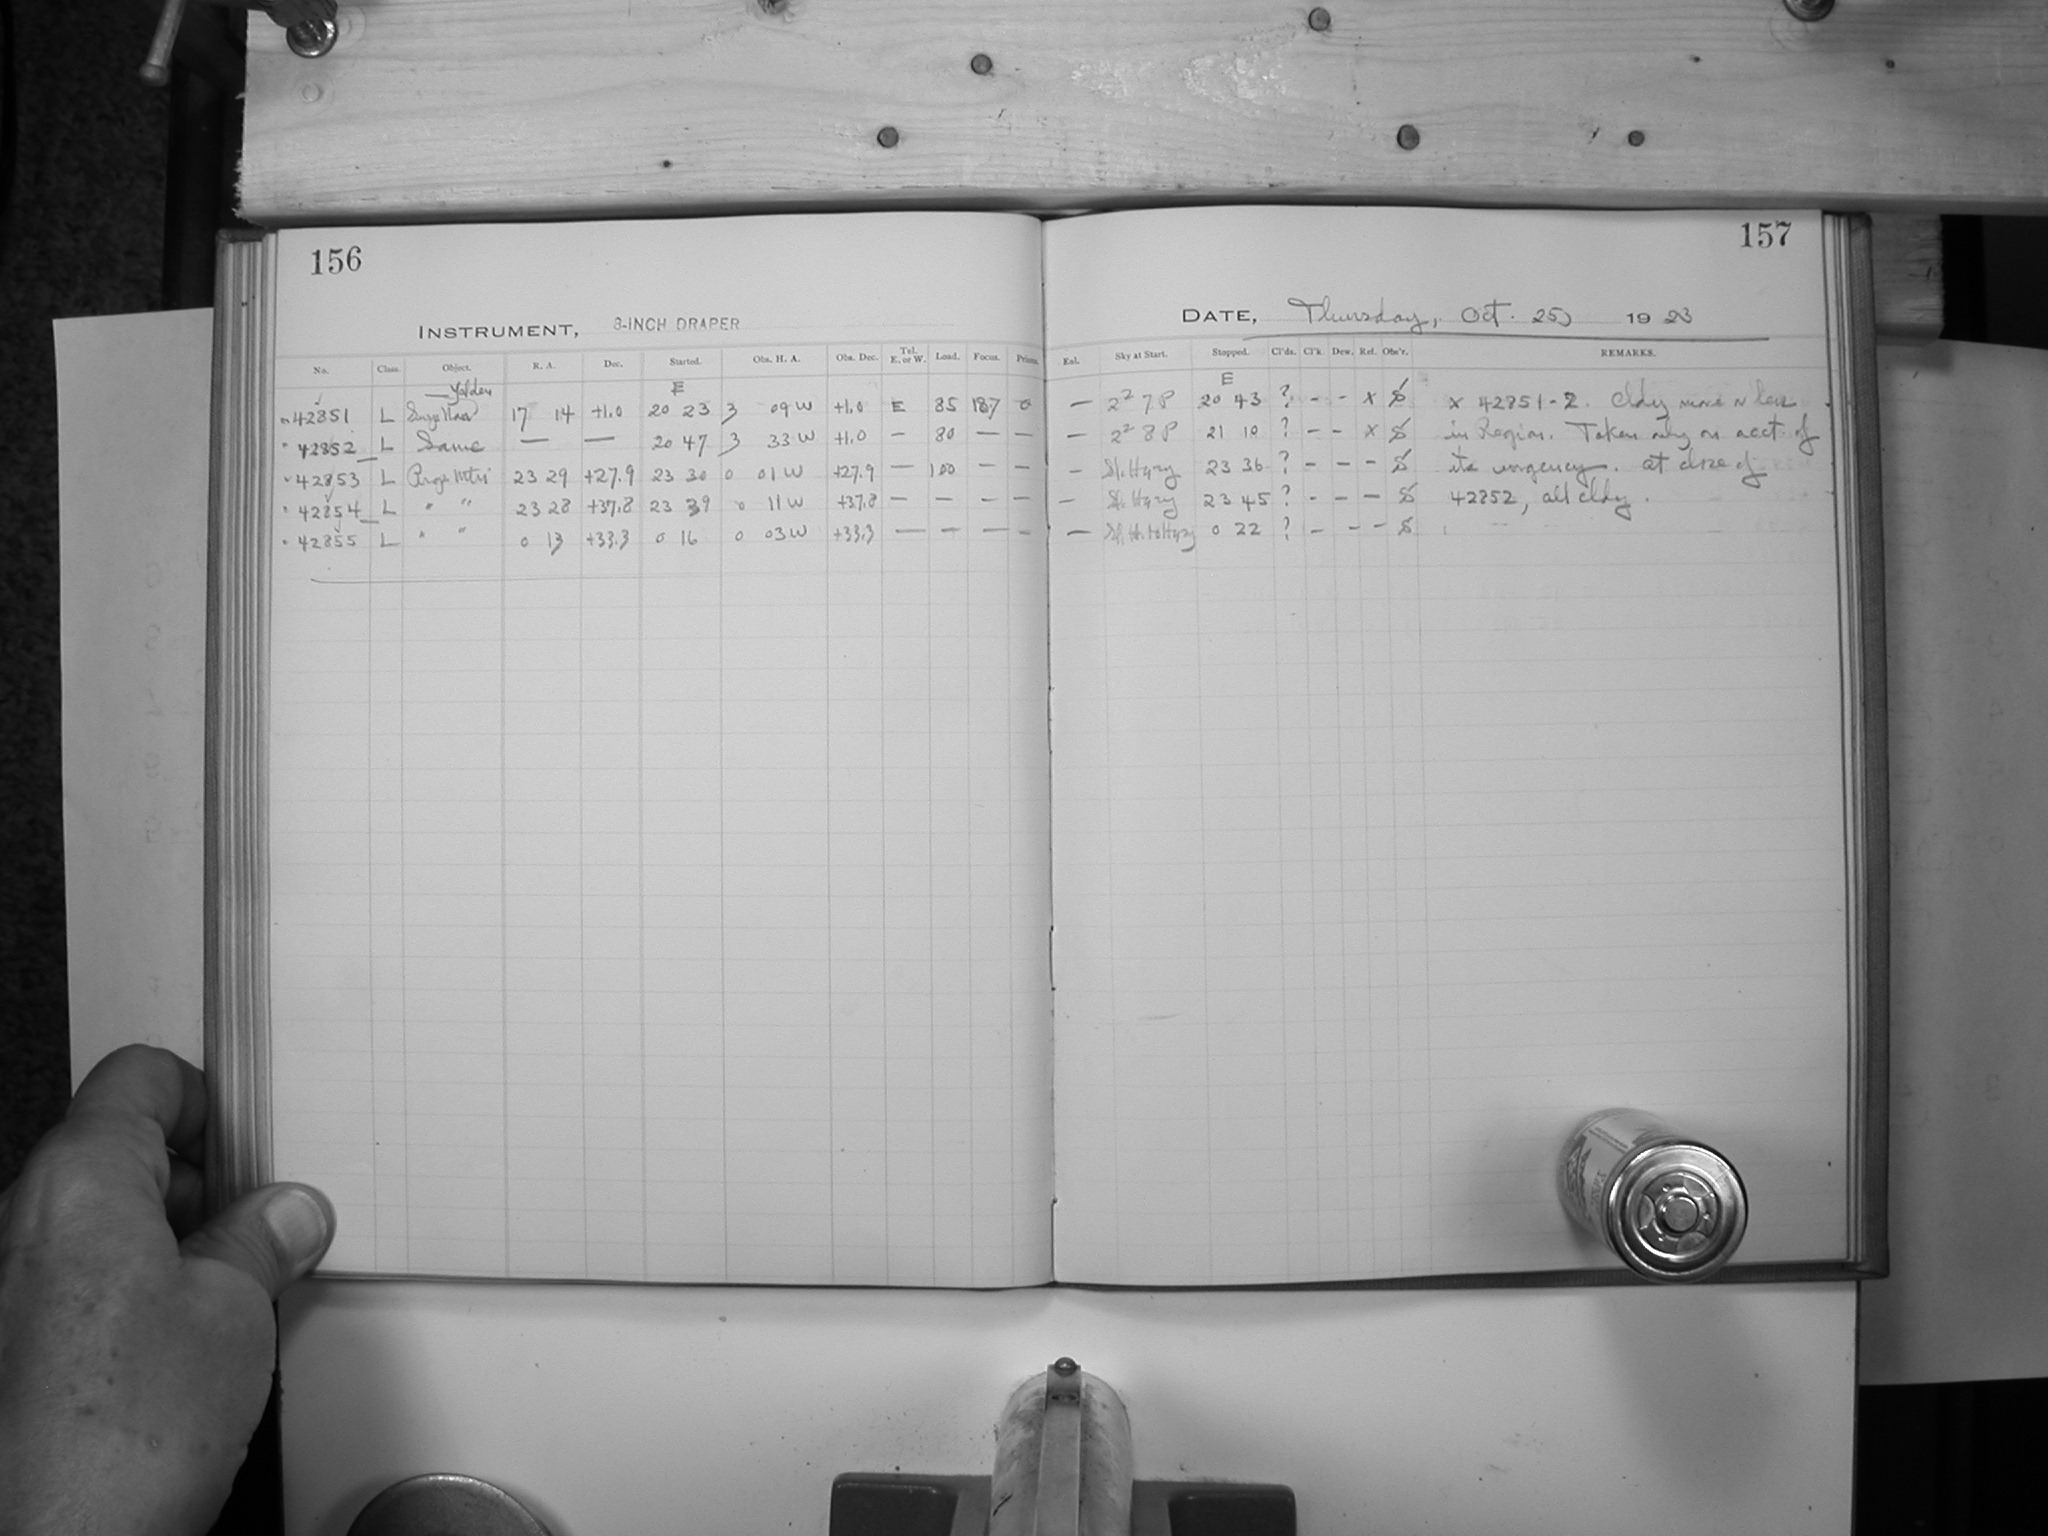 156
INSTRUMENT, 8-INCH DRAPER
No. Class. Object. R. A. Dec. Started. Obs. H. A. Obs. Dec. Tel. E. or W. Load. Focus. Prisms.
E
42851 L 17 14 +1.0 20 23 3 09 W +1.0 E 85 187 0
" 42852 L Same — — 20 47 3 33 W +1.0 — 80 — —
" 42853 L 23 29 +27.9 23 30 0 01 W +27.9 — 100 — —
" 42854 L " " 23 28 +37.8 23 39 0 11 W +37.8 — — — —
" 42855 L " " 0 13 +33.3 0 16 0 03 W +33.3 — — — —
157
DATE, Thursday, Oct. 25, 1923
Sky at Start. Stopped. Cl'ds. Cl'k. Dew. Ref. Obs'r. REMARKS.
E
— 2² 7 P 20 43 ? - - x S x 42851-2. Cldy more or less
— 2² 8 P 21 10 ? - - x S in Region. Taken only on acct of
- Sl. Hazy 23 36 ? - - - S its urgency. At close of
— Sl. Hazy 23 45 ? - - - S 42852, all cldy.
— 0 22 ? - - - S